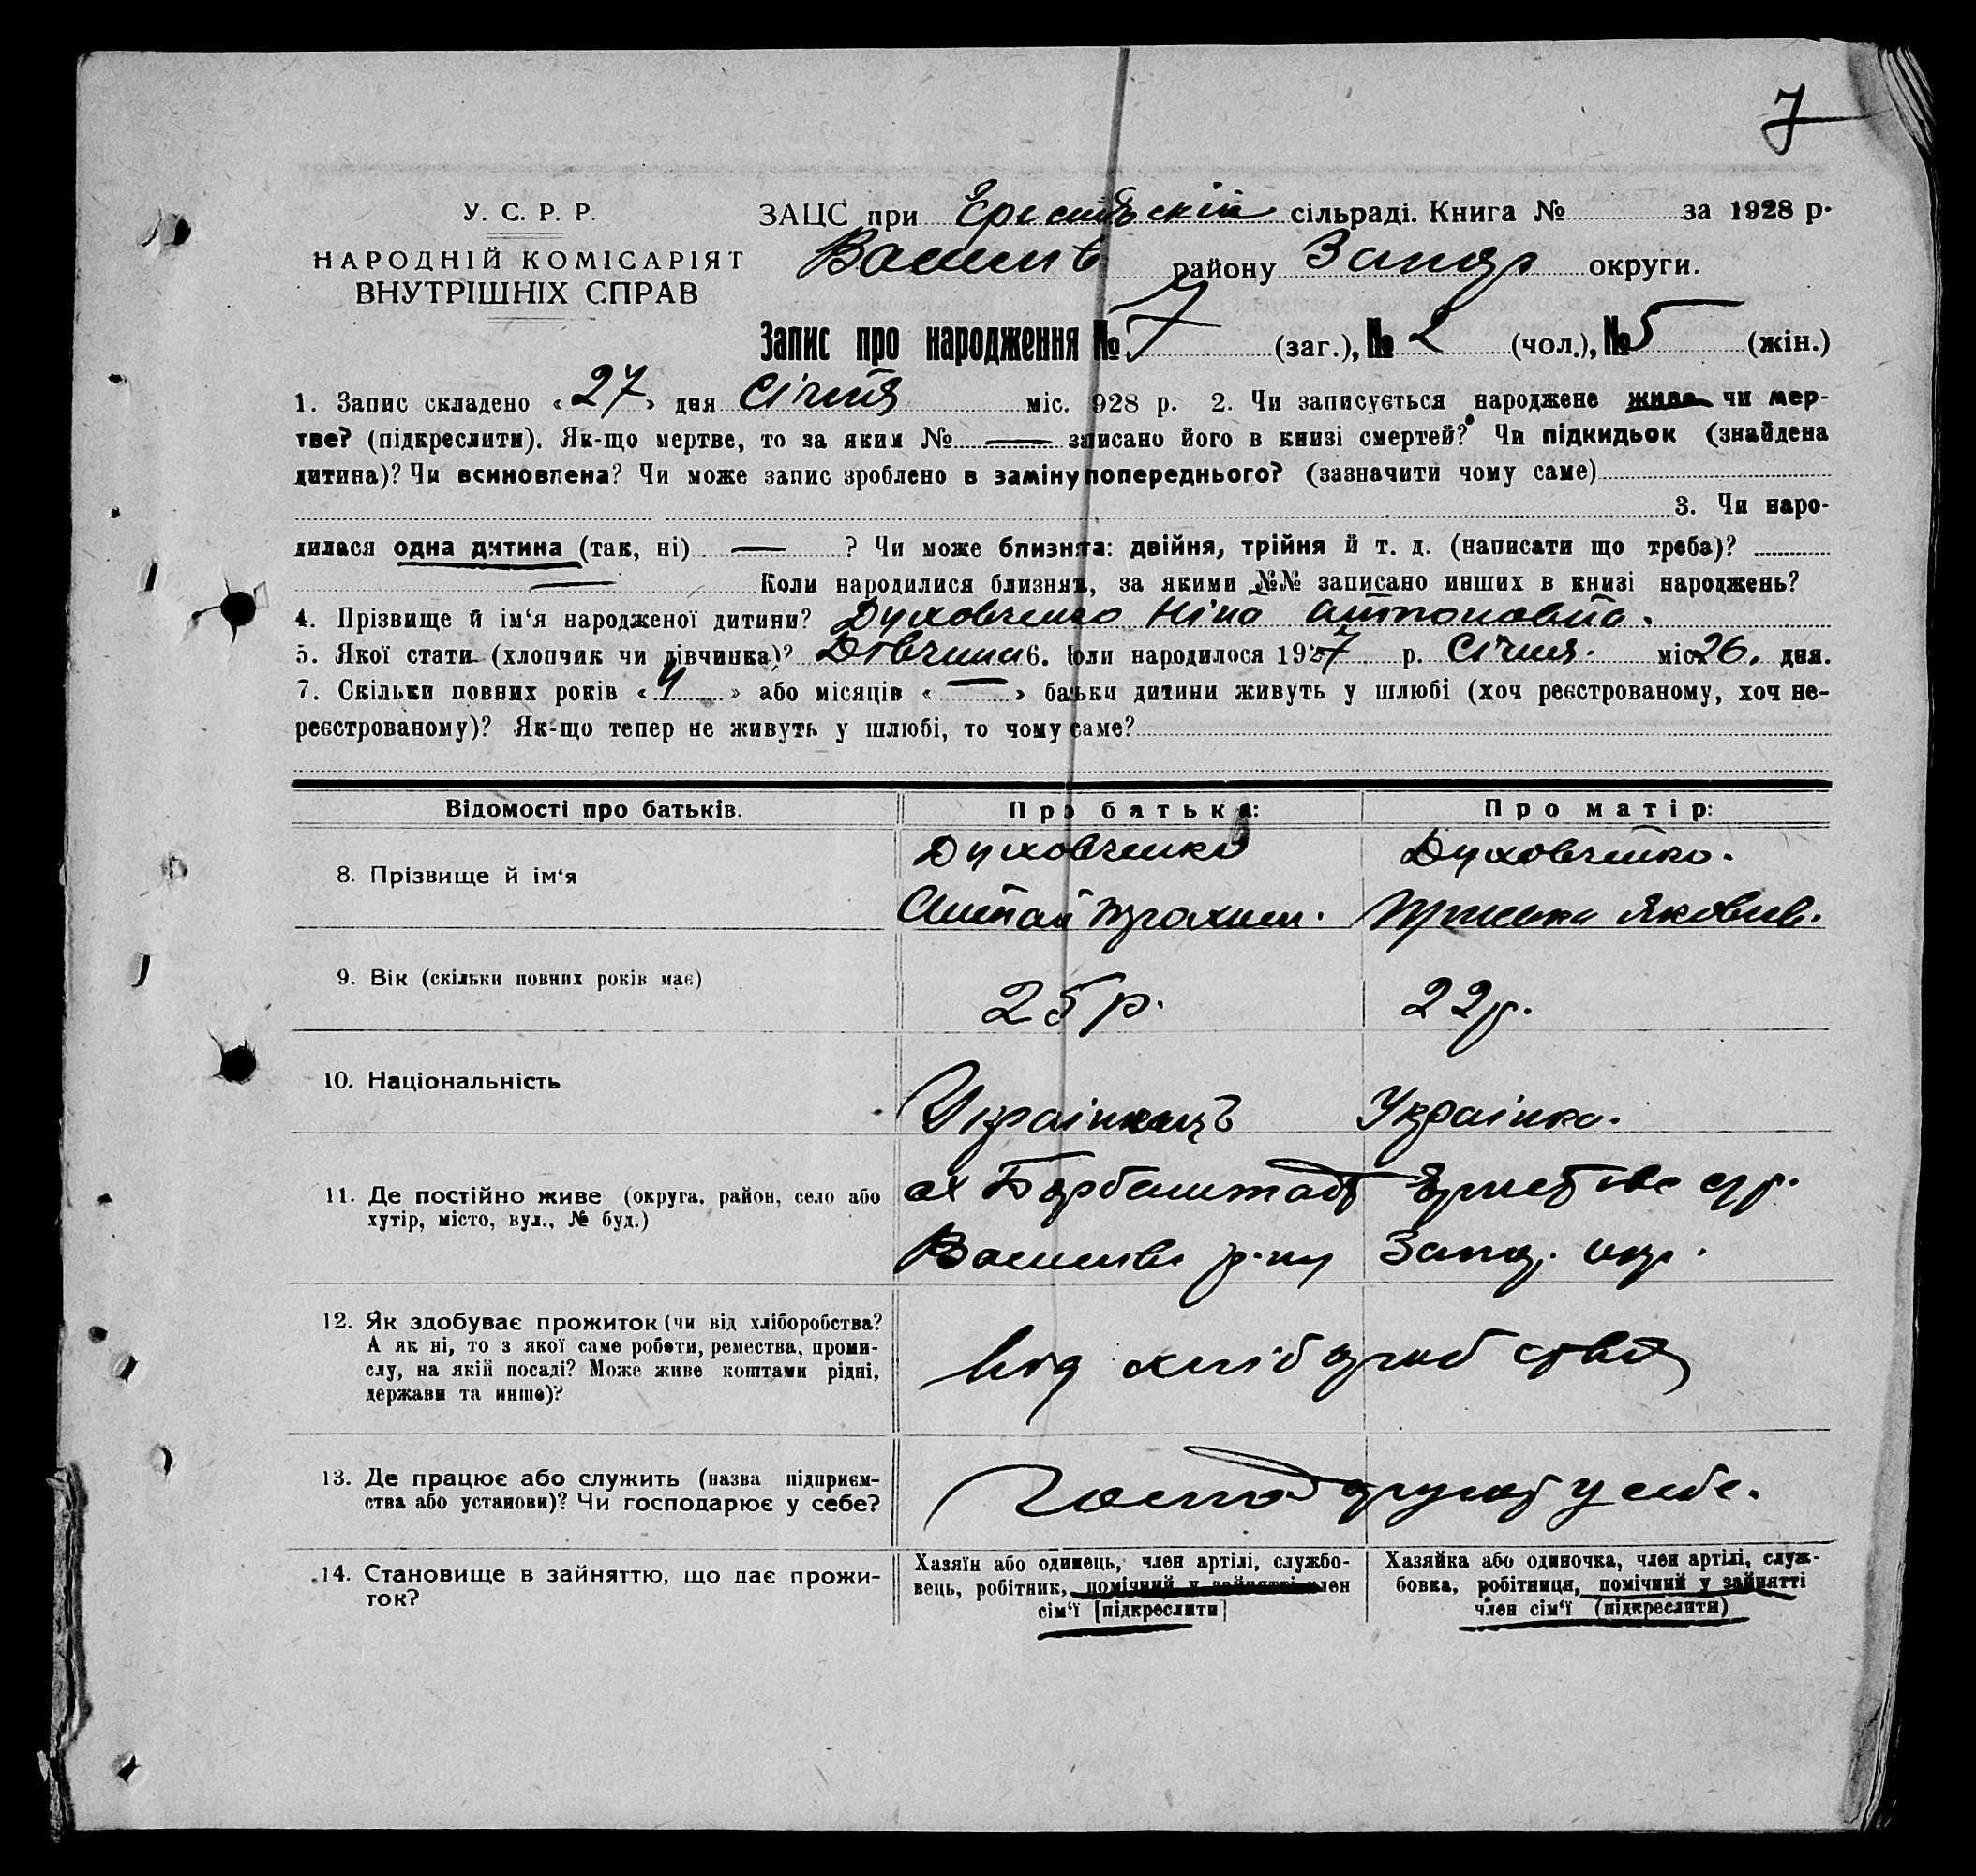 7
У. С. Р. Р.
НАРОДНІЙ КОМІСАРІЯТ
ВНУТРІШНІХ СПРАВ
ЗАЦС при сільраді. Книга № за 1928 р.
Василів району Запор округи.
Запис про народження № 7 (заг.), № 2 (чол.), № 5 (жін.)
1. Запис складено « 27 » дня Січня міс. 928 р. 2. Чи записується народжене живе чи мер-
тве? (підкреслити). Як-що мертве, то за яким № — записано його в книзі смертей? Чи підкидьок (знайдена
дитина)? Чи всиновлена? Чи може запис зроблено в заміну попереднього? (зазначити чому саме)
3. Чи наро-
дилася одна дитина (так, ні) — ? Чи може близнята: двійня, трійня й т. д. (написати що треба)?
— Коли народилися близнята, за якими №№ записано инших в книзі народжень?
4. Прізвище й ім‘я народженої дитини? Духовченко Ніна Антоновна.
5. Якої стати (хлопчик чи дівчинка)? Дівчина 6. Коли народилося 1927 р. Січня. міс. 26. дня.
7. Скільки повних років « 4 » або місяців « — » батьки дитини живуть у шлюбі (хоч реєстрованому, хоч не-
реєстрованому)? Як-що тепер не живуть у шлюбі, то чому саме?
Відомості про батьків. Про батька: Про матір:
8. Прізвище й ім‘я
Духовченко Духовченко.
Антон Трохим. Яковлів.
9. Вік (скільки повних років має) 25 р. 22 р.
10. Національність Українець Українка.
11. Де постійно живе (округа, район, село або
хутір, місто, вул., № буд.)
с/р.
Василівс р-ну Запор. окр.
12. Як здобуває прожиток (чи від хліборобства?
А як ні, то з якої саме роботи, ремества, проми-
слу, на якій посаді? Може живе коштами рідні,
держави та инше)?
від хліборобства
13. Де працює або служить (назва підприєм-
ства або установи)? Чи господарює у себе?
Господарують у себе.
14. Становище в зайняттю, що дає прожи-
ток?
Хазяїн або одинець, член артілі, службо-
вець, робітник, помічний у зайнятті член
сім‘ї [підкреслити]
Хазяйка або одиночка, член артілі, служ-
бовка, робітниця, помічний у зайнятті
член сім‘ї (підкреслити)